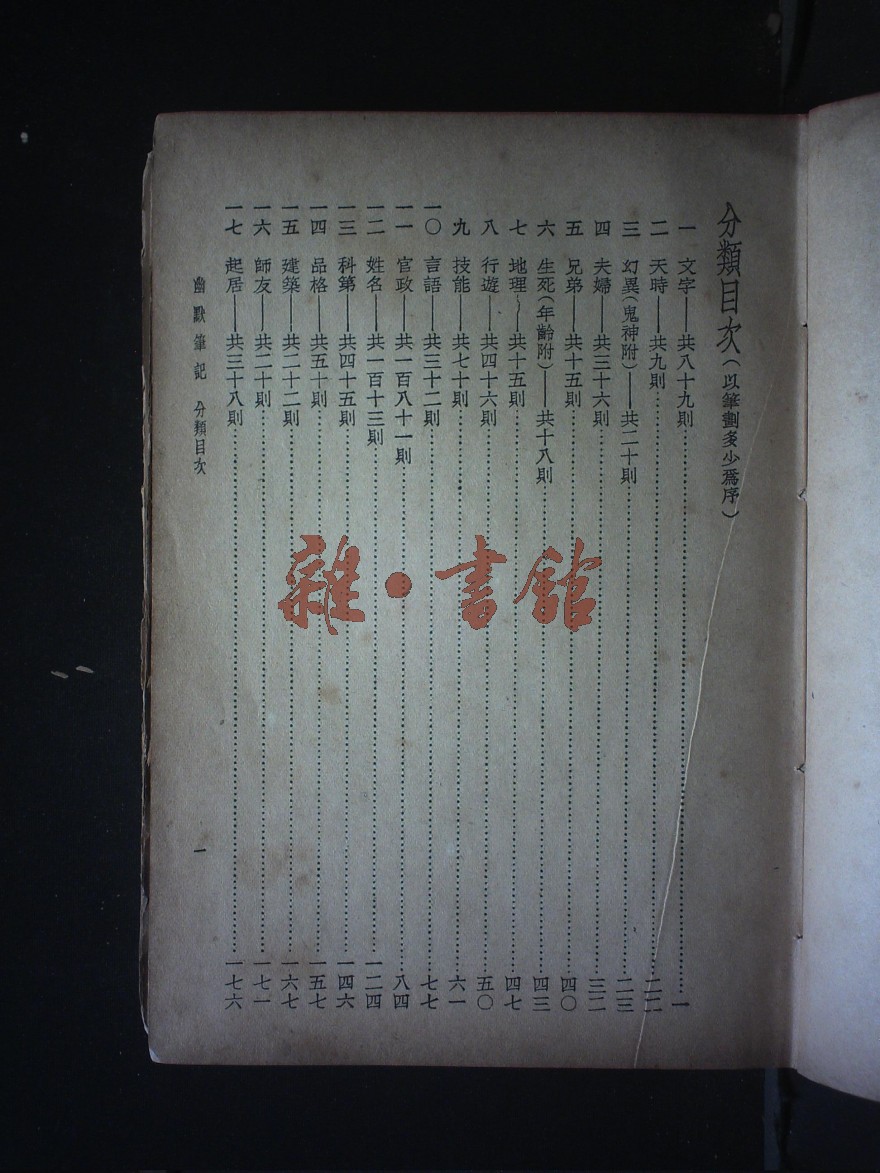 分類目次(以筆劃多少爲序)
一 文字——共八十九則……一
二 天時——共九則……二二
三 幻異(鬼神附)——共二十則……二三
四 夫婦——共三十六則……三二
五 兄弟——共十五則……四〇
六 生死(年齡附)——共十八則……四三
七 地理——共十五則……四七
八 行遊——共四十六則……五〇
九 技能——共七十則……六一
一〇 言語——共三十二則……七七
一一 官政——共一百八十一則……八四
一二 姓名——共一百十三則……一二四
一三 科第——共四十五則……一四六
一四 品格——共五十則……一五七
一五 建築——共二十二則……一六七
一六 師友——共二十則……一七一
一七 起居——共三十八則……一七六
幽默筆記 分類目次 一
雜·書館